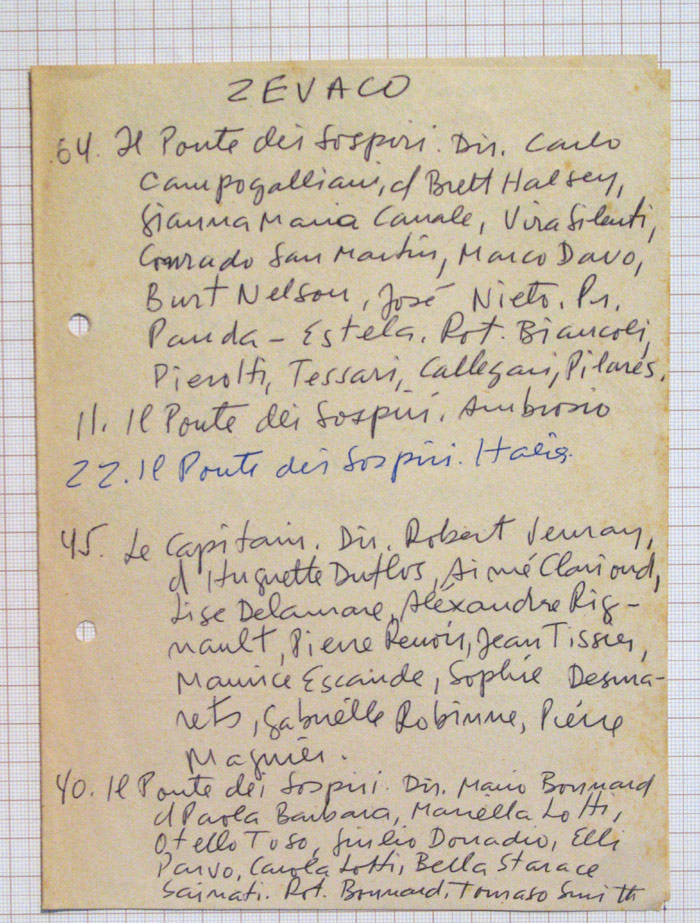 ZEVACO
64. Il Ponte dei Sospiri. Dir. Carlo
Campogalliani, d Brett Halsey,
Gianna Maria Canale, Vira Silenti,
Conrado San Martín, Marco Davo,
Burt Nelson, José Nieto. Pr.
Panda - Estela. Rot. Biancoli,
Pierotti, Tessari, Callegari, Pilarés.
11. Il Ponte dei Sospiri. Ambrosio
22. Il Ponte dei Sospiri. Italia.
45. Le Capitain. Dir. Robert Vernay,
d Huguette Duflos, Aimé Clariond,
Lise Delamare, Aléxandre Rig-
nault, Pierre Renoir, Jean Tissier,
Maurice Escande, Sophie Desma-
rets, Gabrielle Robinne, Pierre
Magnier.
40. Il Ponte dei Sospiri. Dir. Mario Bonnard
d Paola Barbara, Mariella Lotti,
Otello Toso, Giulio Donadio, Elli
Parvo, Carola Lotti, Bella Starace
Sainati. Rot. Bonnard, Tomaso Smith